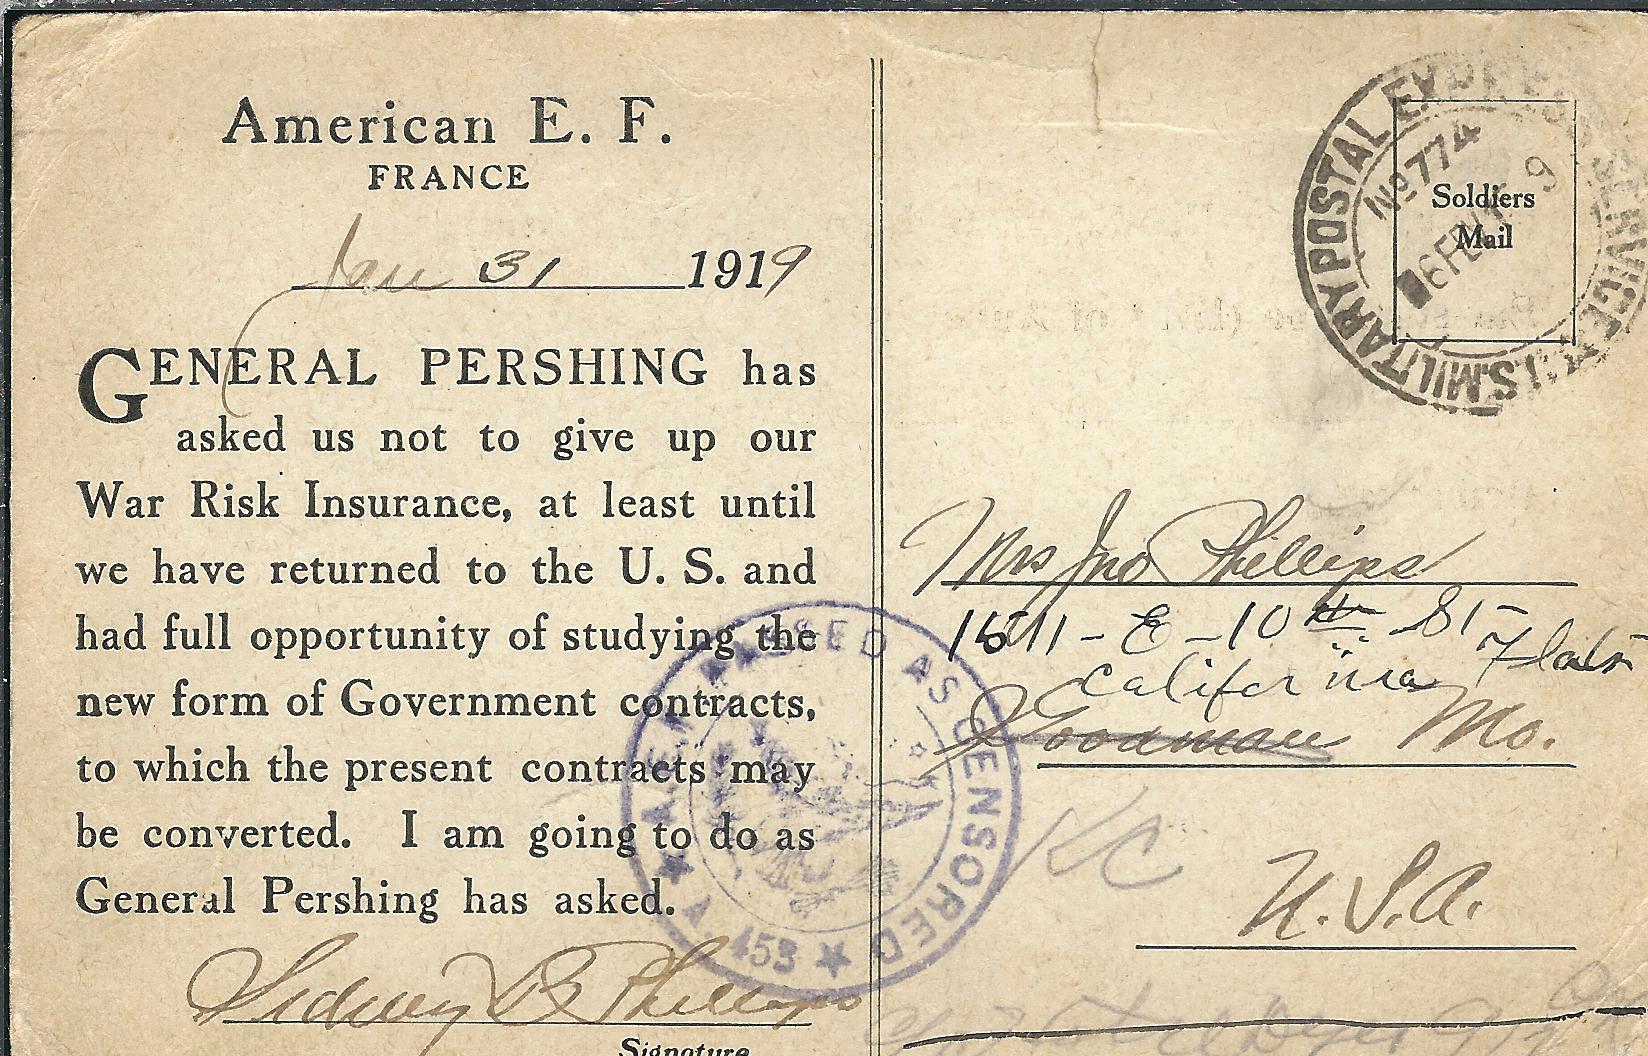 American E. F.
FRANCE
Jan 31 1919
GENERAL PERSHING has
asked us not to give up our
War Risk Insurance, at least until
we have returned to the U. S. and
had full opportunity of studying the
new form of Government contracts,
to which the present contracts may
be converted. I am going to do as
General Pershing has asked.
Sidney B Phillips
Signature
A.E.F. PASSED AS CENSORED
A. 453
U.S. MILITARY POSTAL EXPRESS SERVICE
No 774
6 FEB
9
Soldiers
Mail
Mrs Jno Phillips
1611 - E - 10th St Flats
California
Goodman Mo.
KC
U.S.A.